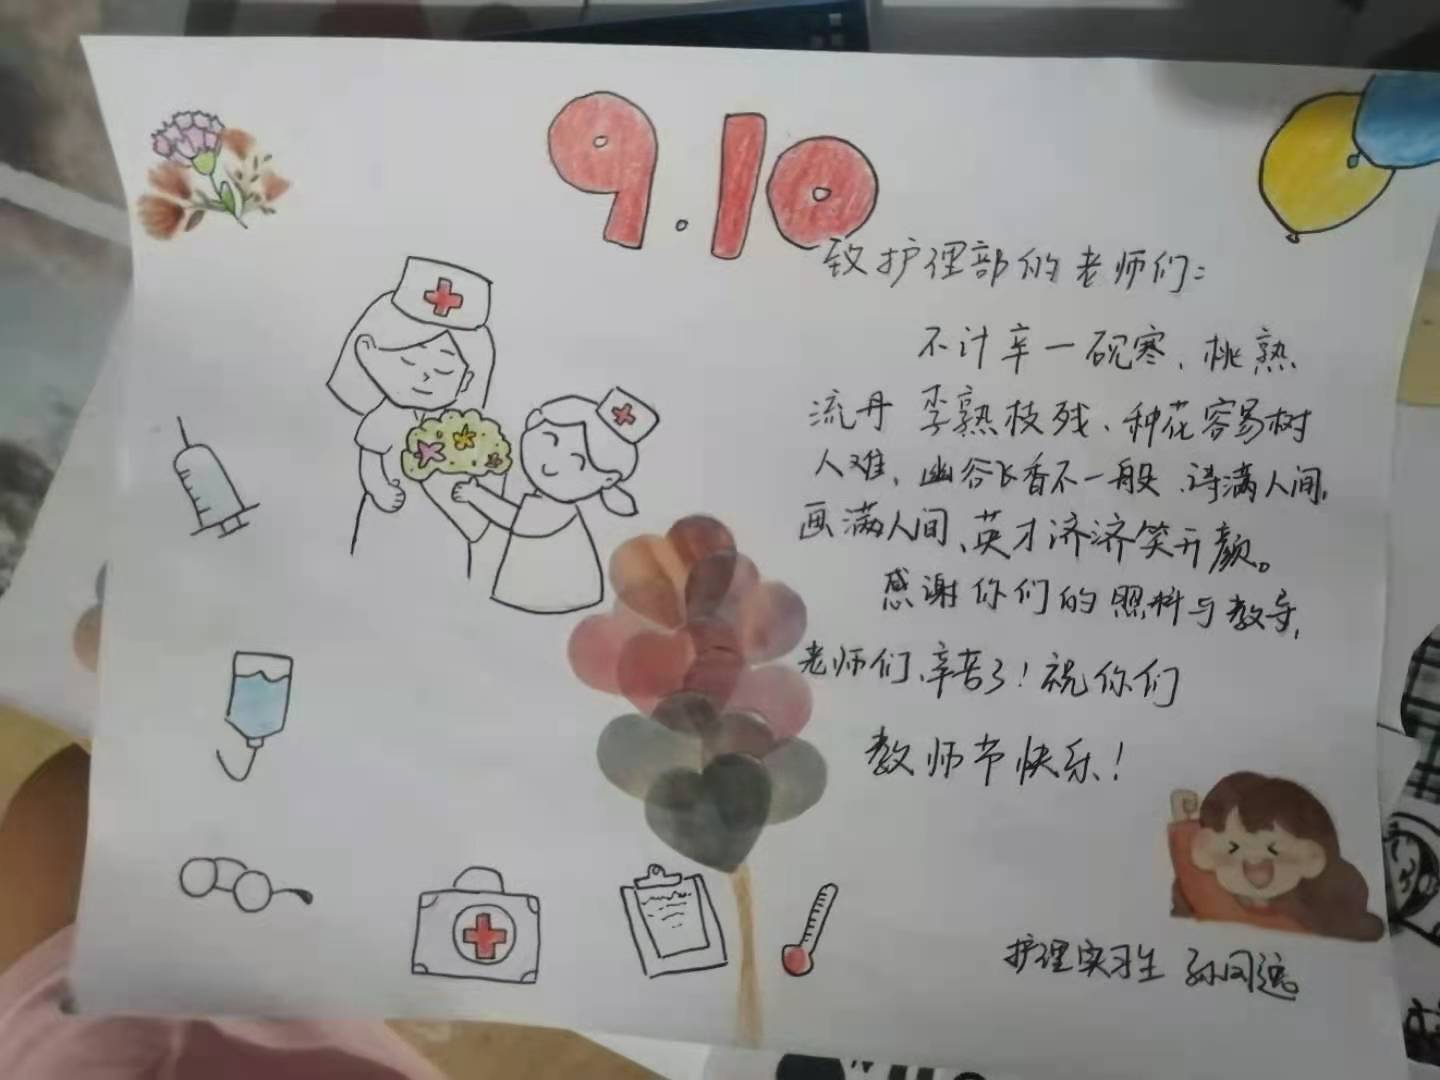 9.10
致护理部的老师们：
不计辛一砚寒、桃熟
流丹 李熟枝残、种花容易树
人难、幽谷飞香不一般、诗满人间，
画满人间、英才济济笑开颜。
感谢你们的照料与教导，
老师们、辛苦了！祝你们
教师节快乐！
护理实习生 孙同远